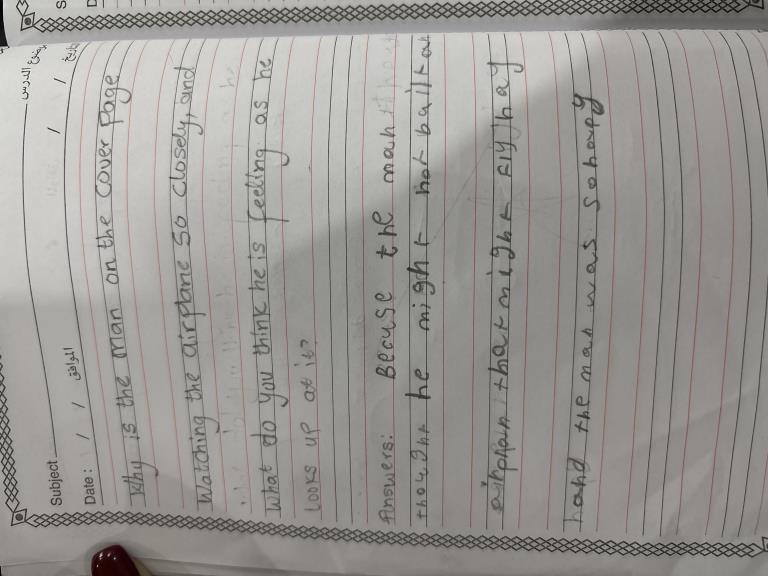 موضوع الدرس
Subject
التاريخ / /
Date: / / الموافق
Why is the man on the cover page
Watching the airplane so closely, and
What do you think he is feeling as he
looks up at it?
Answers: Becuse the man
thought he might not
that might fly
the man was